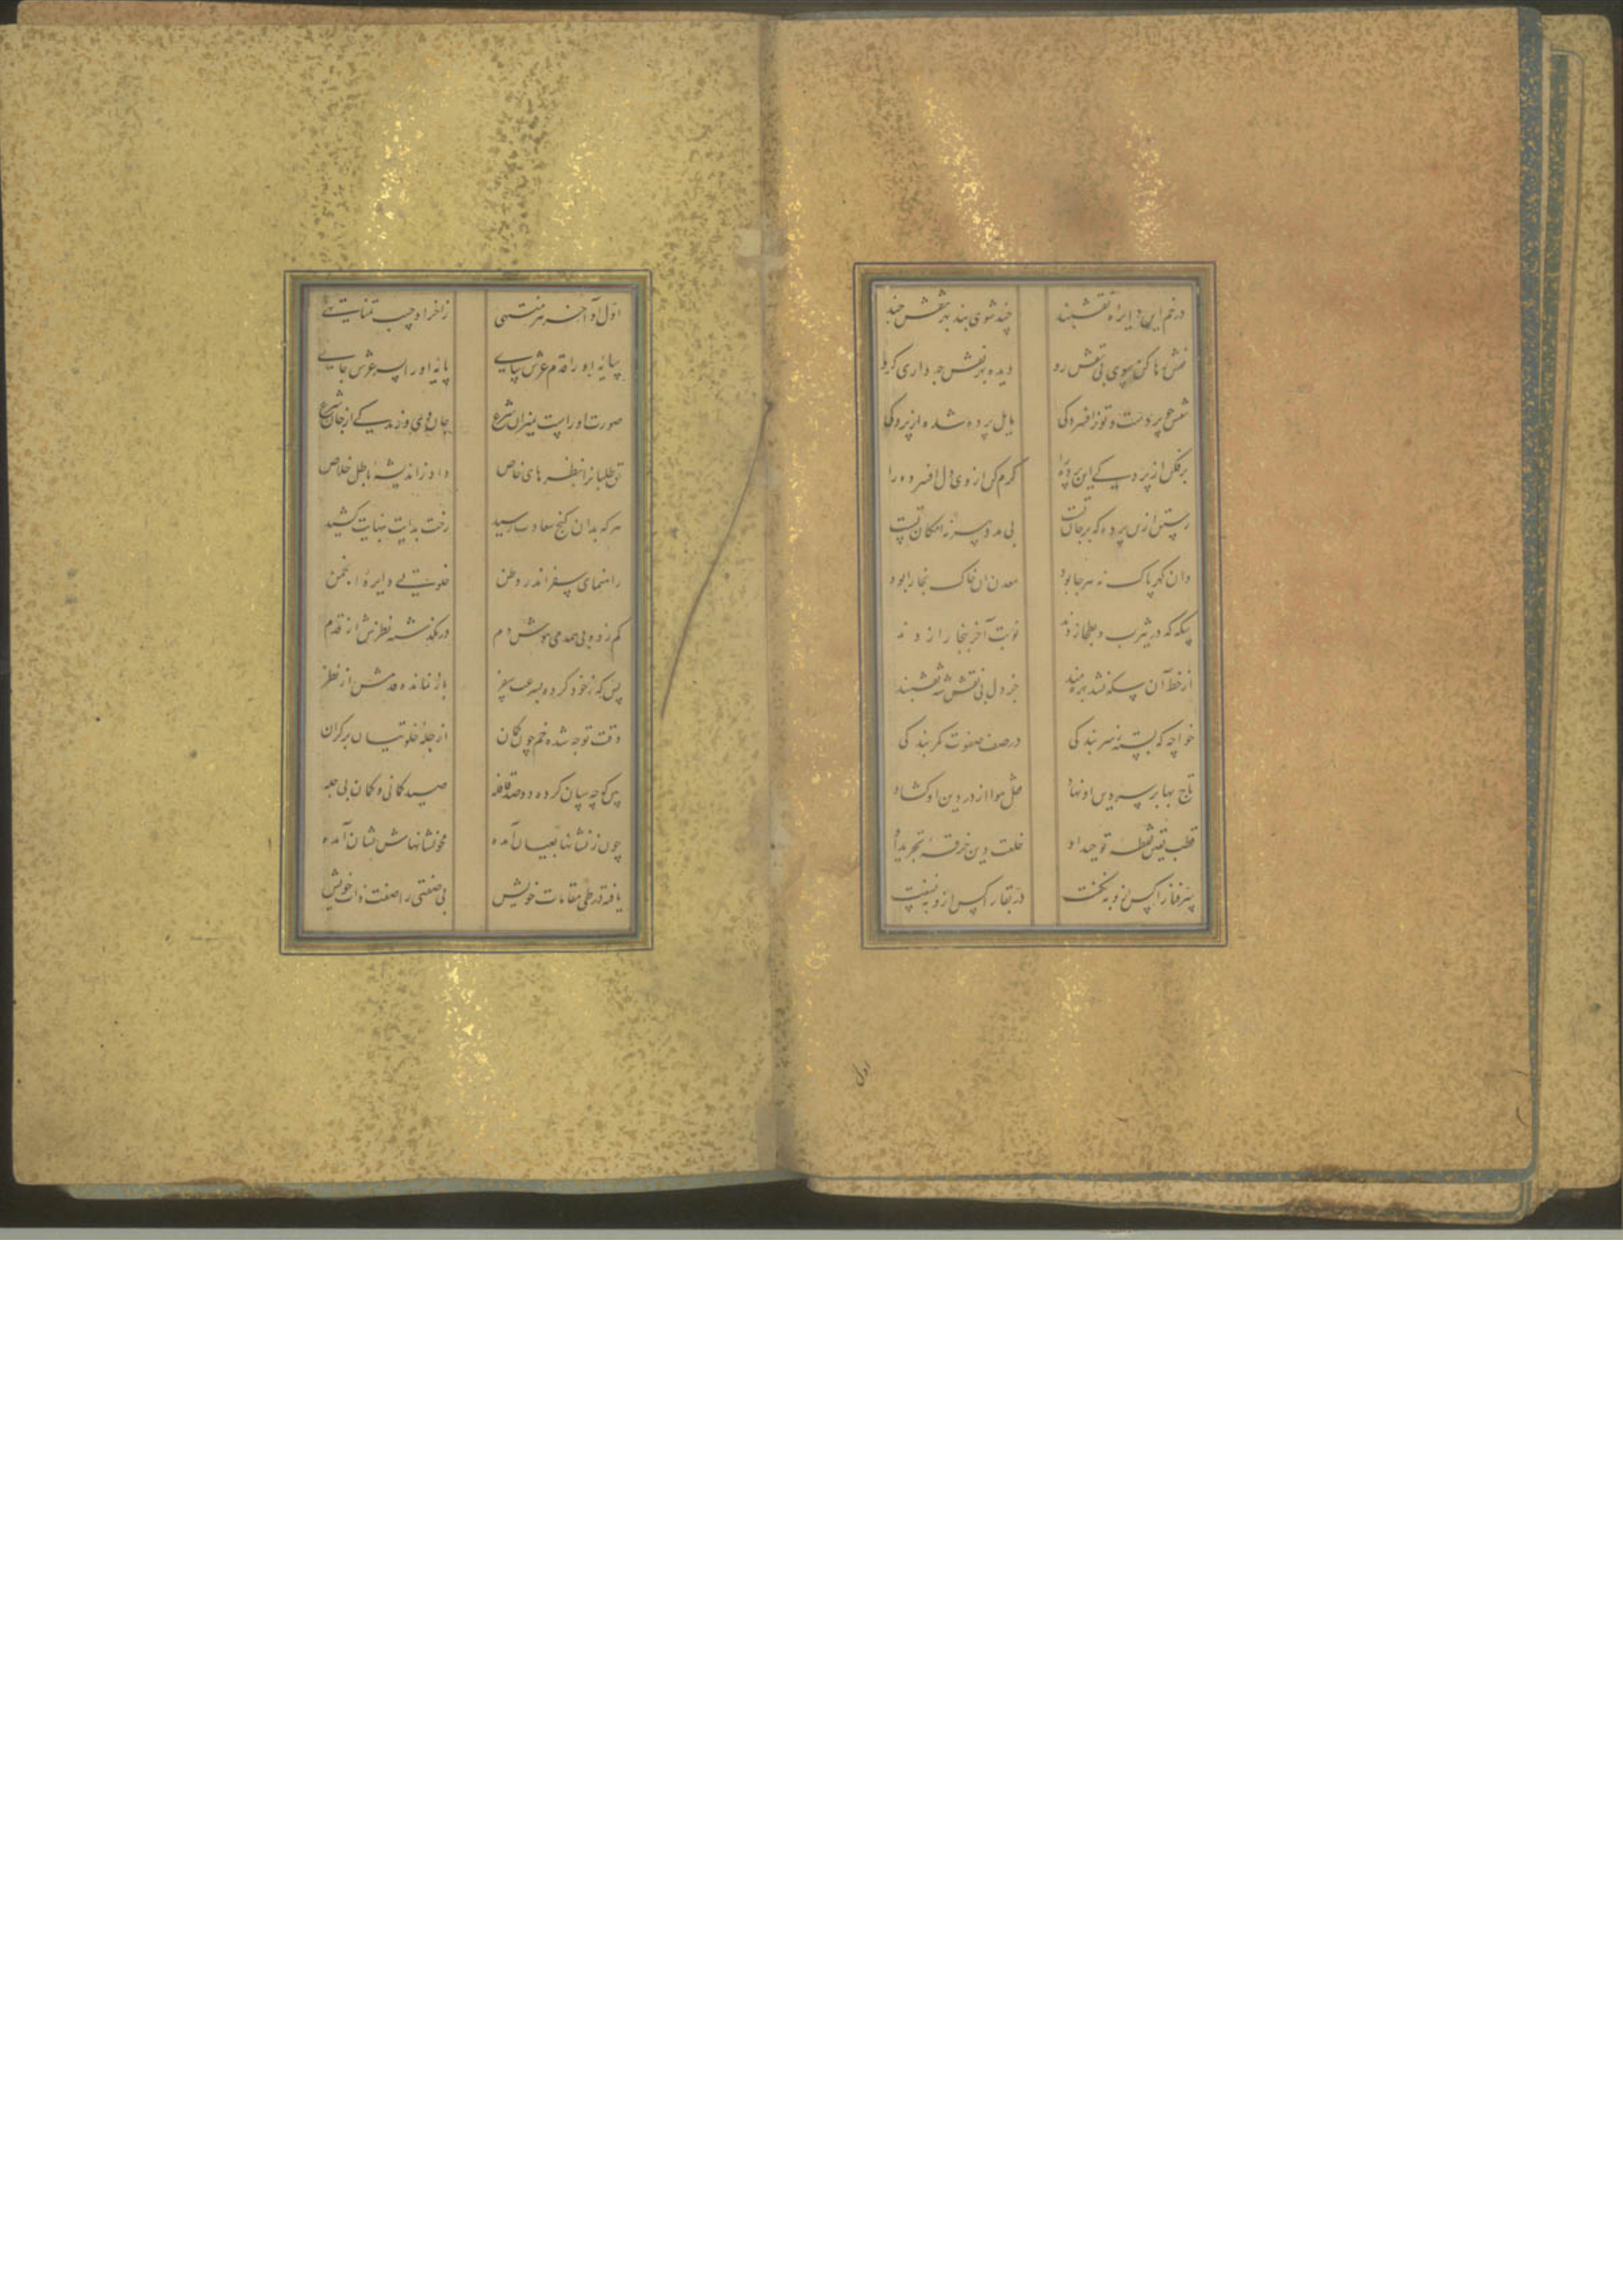 در خم این دایرهٔ نقشبند چند شوی بند بهر نقش چند
نقش رها کن سوی بی نقش رو دیده بهر نقش چه داری گرو
نقش چو پرده‌ست و تو ز افسردگی مایل پرده شده از پردگی
برفکن از پردگی این پرده را گرم کن از وی دل افسرده را
رستن ازین پرده که بر جان تست بی مدد پیر نه امکان تست
وان گهر پاک نه هر جا بود معدن آن خاک بخارا بود
سکه که در یثرب و بطحا زدند نوبت آخر به بخارا زدند
از خط آن سکه نشد بهره‌مند جز دل بی نقش شه نقشبند
خواجه که بسته ز سر بندگی در صف صفوت کمر بندگی
تاج بها بر سر دین او نهاد قفل هوا از در دین او گشاد
قطب یقین نقطهٔ توحید او خلعت دین خرقهٔ تجرید او
سر فنا را کس ازو به نگفت در بقا را کس ازو به نسفت
اول
اول او آخر هر منتهی ز آخر او جیب تمنا تهی
پایهٔ او را قدم عرش سای پایهٔ او را سر عرش جای
صورت او راست میزان شرع
حق طلبان را بنظرهای خاص داد ز اندیشهٔ باطل خلاص
هر که بدان گنج سعادت رسید رخت بدایت به نهایت کشید
راهنمای سفر اندر وطن خلوتی دایرهٔ انجمن
کم زده بی همدمی هوش دم درنگذشته نظرش از قدم
بس که ز خود کرده بسرعت سفر بازنمانده قدمش از نظر
وقت توجه شده خم چون کمان از جلهٔ خلوتیان بر کران
پی کوچه بیان کرده دو صد قافله صید کمانی و کمان بی چله
چون ز نشانها بعیان آمده محو نشانهاش نشان آمده
یافته در طی مقامات خویش بی صفتی را صفت ذات خویش